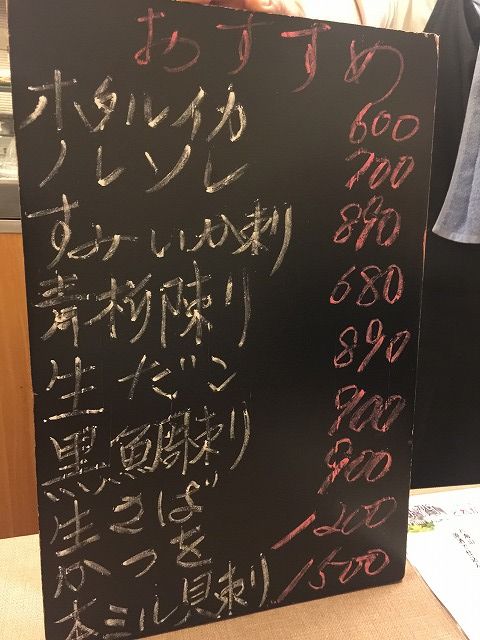 おすすめ
ホタルイカ 600
ノレソレ 700
すみいか刺 890
青柳刺 680
生だこ 890
黒鯛刺 900
生さば 900
かつを 1200
本ミル貝刺 1500